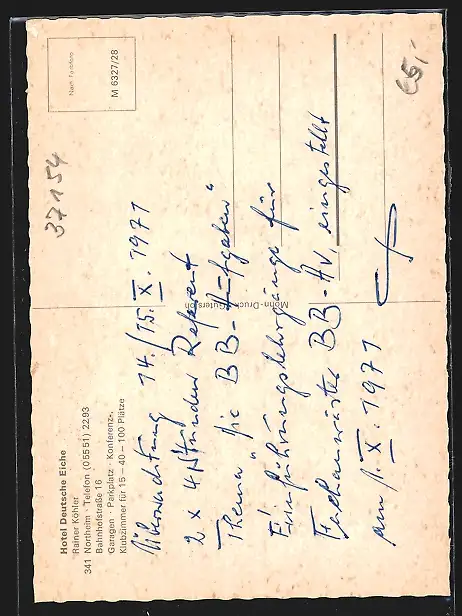 Hotel Deutsche Eiche
Rainer Köhler
341 Northeim · Telefon (0 55 51) 22 93
Bahnhofstraße 16
Garagen · Parkplatz · Konferenz-,
Klubzimmer für 15 – 40 – 100 Plätze
Nach Farbfoto
M 6327/28
37154
65,-
Mohn-Druck Gütersloh
Übernachtung 14./15. X. 1971
2 x 4 Stunden Referent
Thema "Die BB-Aufgaben"
Einführungslehrgänge für
Fachanwärter BB-AV, eingestellt
am 1. X. 1971